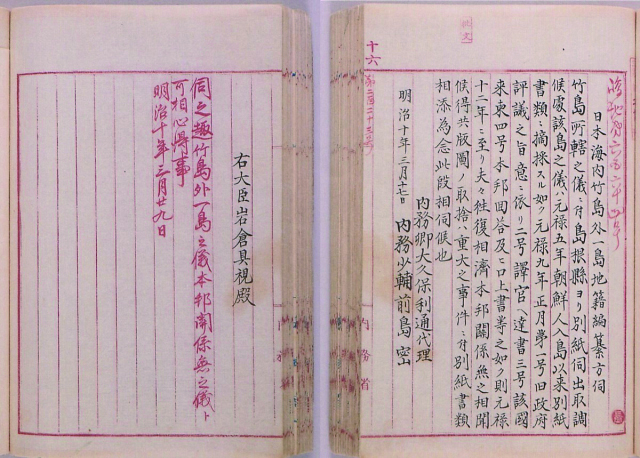 日本海内竹島外一島地籍編纂方伺
竹島所轄之儀ニ付島根縣ヨリ別紙伺出取調
候處該島之儀ハ元禄五年朝鮮人入島以来別紙
書類ニ摘採スル如ク元禄九年正月第一号旧政府
評議之旨意ニ依リ二号譯官ヘ達書三号該國
来柬四号本邦回答及ヒ口上書等之如ク則元禄
十二年ニ至リ夫々往復相濟本邦関係無之相聞
候得共版圖ノ取捨ハ重大之事件ニ付別紙書類
相添為念此段相伺候也
内務卿大久保利通代理
明治十年三月十七日 内務少輔前島密
十六
内務省
右大臣岩倉具視殿
伺之趣竹島外一島之儀本邦関係無之儀ト
可相心得事
明治十年三月廿九日